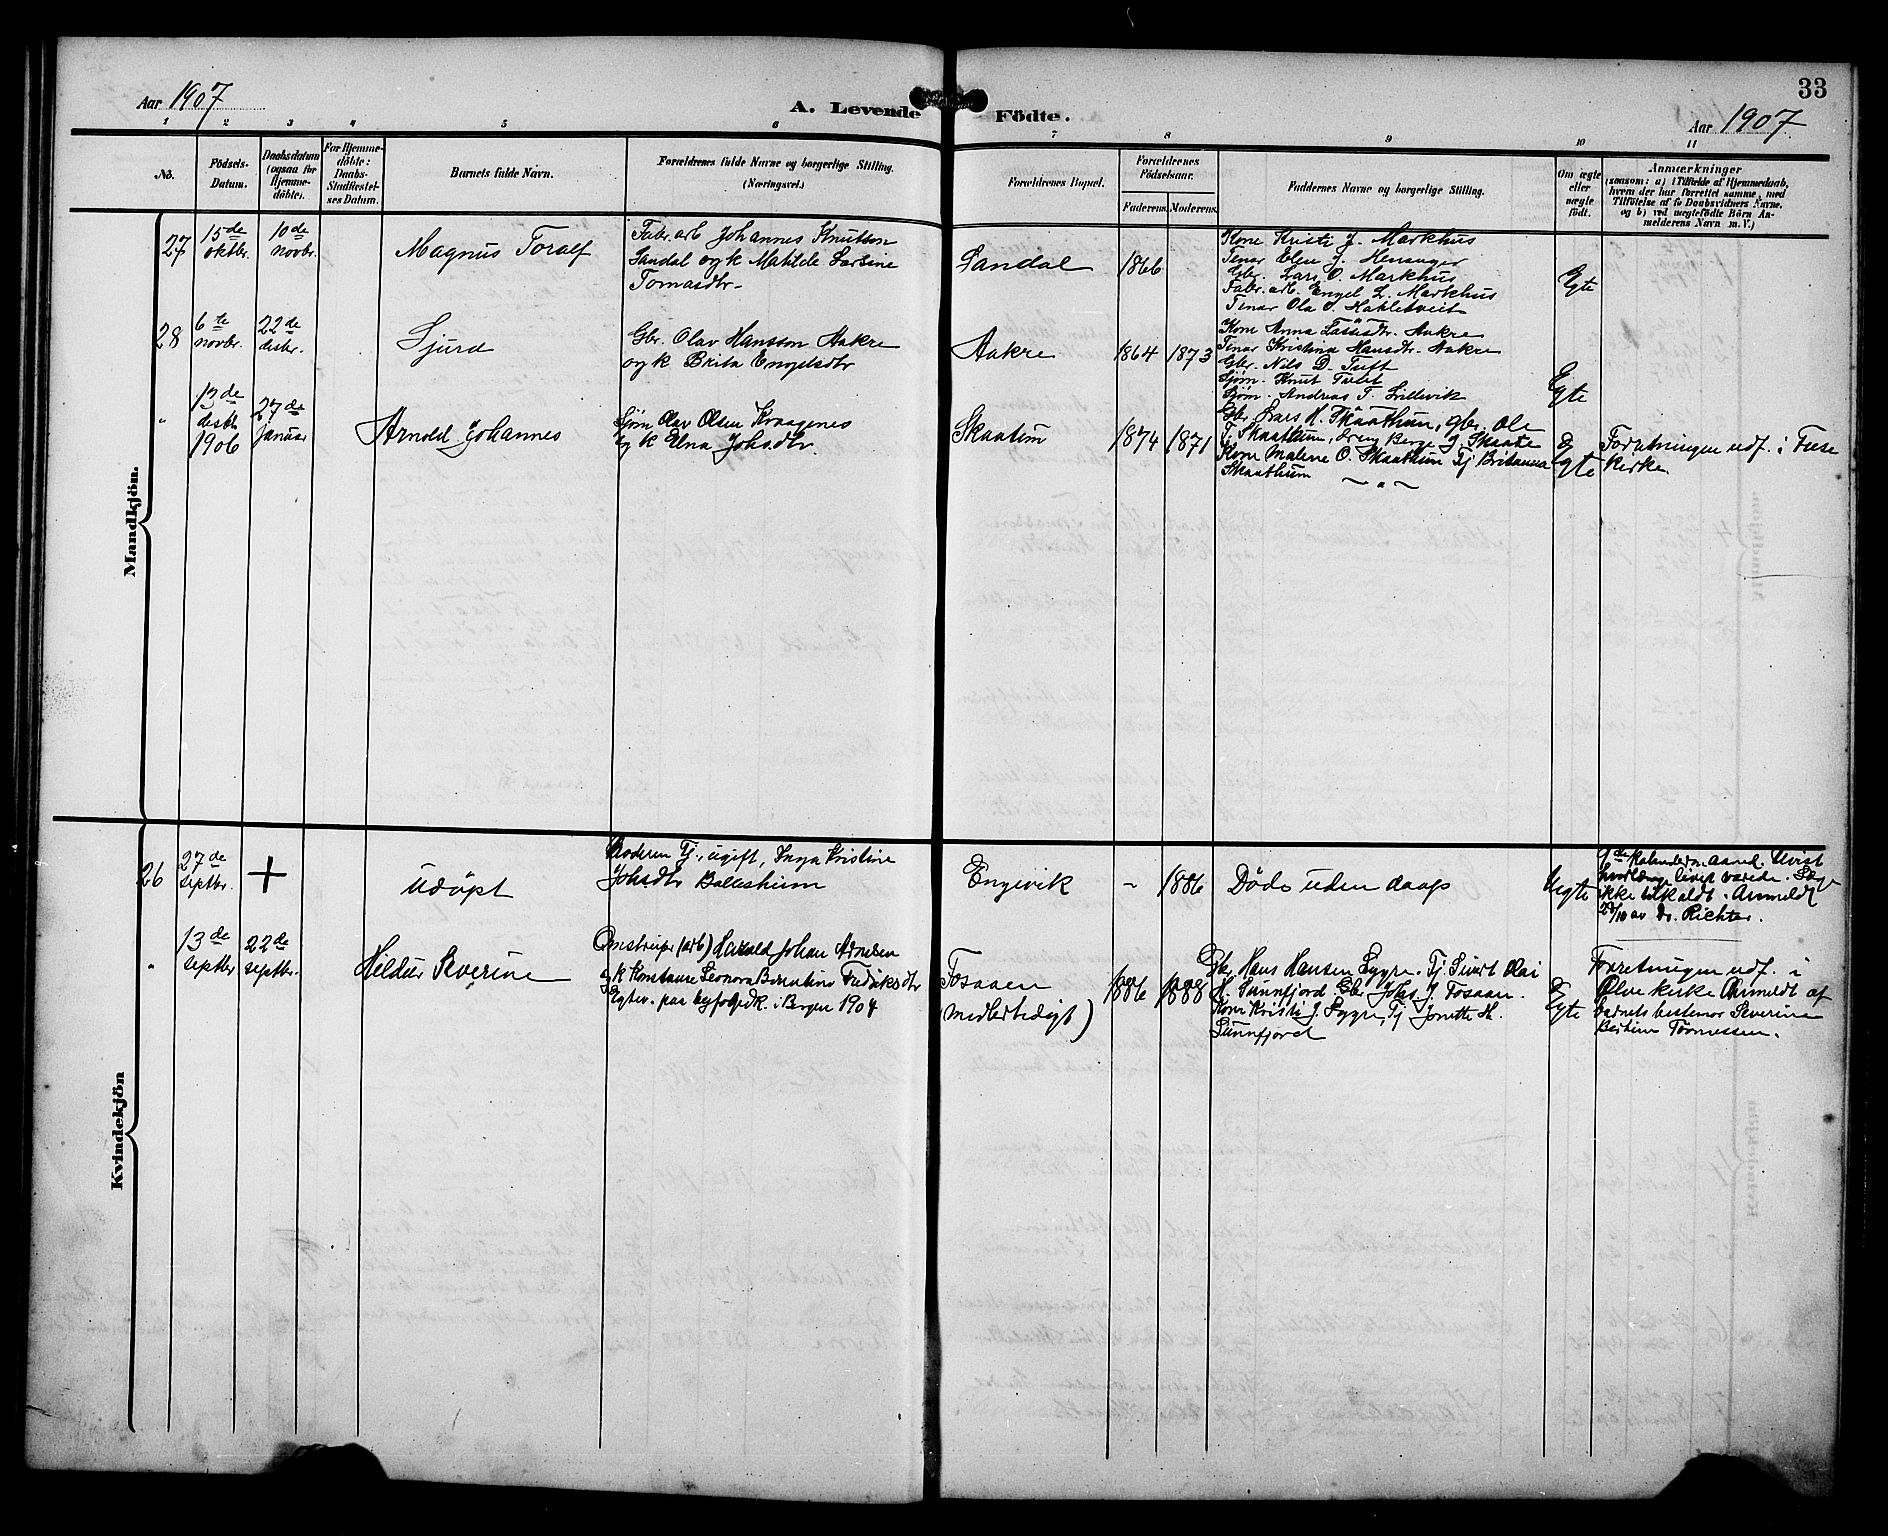 Aar 1907
A. Levende Födte.
33
Aar 1907
1 2 3 4 5 6 7 8 9 10 11
No.
Födsels-Datum.
Daabsdatum (ogsaa for Hjemme-döbte).
For Hjemme-döbte: Daabs-Stadfæstel-ses Datum.
Barnets fulde Navn.
Forældrenes fulde Navne og borgerlige Stilling.
(Næringsvei.)
Forældrenes Bopæl.
Forældrenes Födselsaar.
Faderens. Moderens.
Faddernes Navne og borgerlige Stilling.
Om ægte eller uægte födt.
Anmærkninger
(saasom: a) i Tilfælde af Hjemmedaab,
hvem der har forrettet samme, med
Tilföielse af to Daabsvidners Navne,
og b) ved uægtefödte Börn An-
melderens Navn m. V.)
Mandkjön.
27
15de oktbr.
10de novbr.
Magnus Toralf
Fabr. arb Johannes Knutson
Sandal og k Matilde Larsine
Tomasdtr
Sandal
1866
Kone Kristi J. Markhus
Tenar Elen J. Heranger
Gbr. Lars O. Markhus
Fabr. arb. Engel L. Markhus
Tenar Ola O.
Egte
28
6te novbr.
22de desbr.
Sjurd
Gbr. Olav Hansson Aakre
og k Brita Engelsdtr
Aakre
1864
1873
Kone Anna Lassesdtr. Aakre
Tenar Kristina Hansdtr. Aakre
Gbr. Nils D. Tuft
Sjöm. Knut Tuft
Sjöm. Andreas T. Lillevik
Egte
"
13de desbr 1906
27de Januar
Arnold Johannes
Sjöm Olav Olsen Kraagenes
og k Elna Johsdtr.
Skaatun
1874
1871
Gbr Lars H. Skaathun, Gbr. Ole
T. Skaathun, dreng Berge J. Skaate
Kone Malene O. Skaathun Tj Britanna
Skaathun
Egte
Foretningen udf. i Fuse
kirke
Kvindekjön
26
27de septbr.
+
udöpt
Moderen Tj., ugift, Inga Kristine
Johsdtr Baldersheim
Engevik
-
1886
Döde uden daap
Uegte
ikke tilkaldt. Anmeldt
29/10 av Dr. Richter.
"
13de septbr
22de septbr.
Hildur Severine
(arb) Harald Johan Arnesen
og k Konstanse Leonora Berentine Fredriksdtr
Egtev. paa byfogdk. i Bergen 1904
Fosaaen
midlertidigt)
1886
1888
Gbr. Hans Hansen Lygre. Tj Sivert Olai
H. Sunnfjord Gbr. Johs J. Fosaaen.
Kone Kristi J. Lygre, Tj Jonette H.
Sunnfjord
Egte
Foretningen udf. i
Ølve kirke Anmeldt af
barnets bestemor Severine
Bertine Tönnessen.